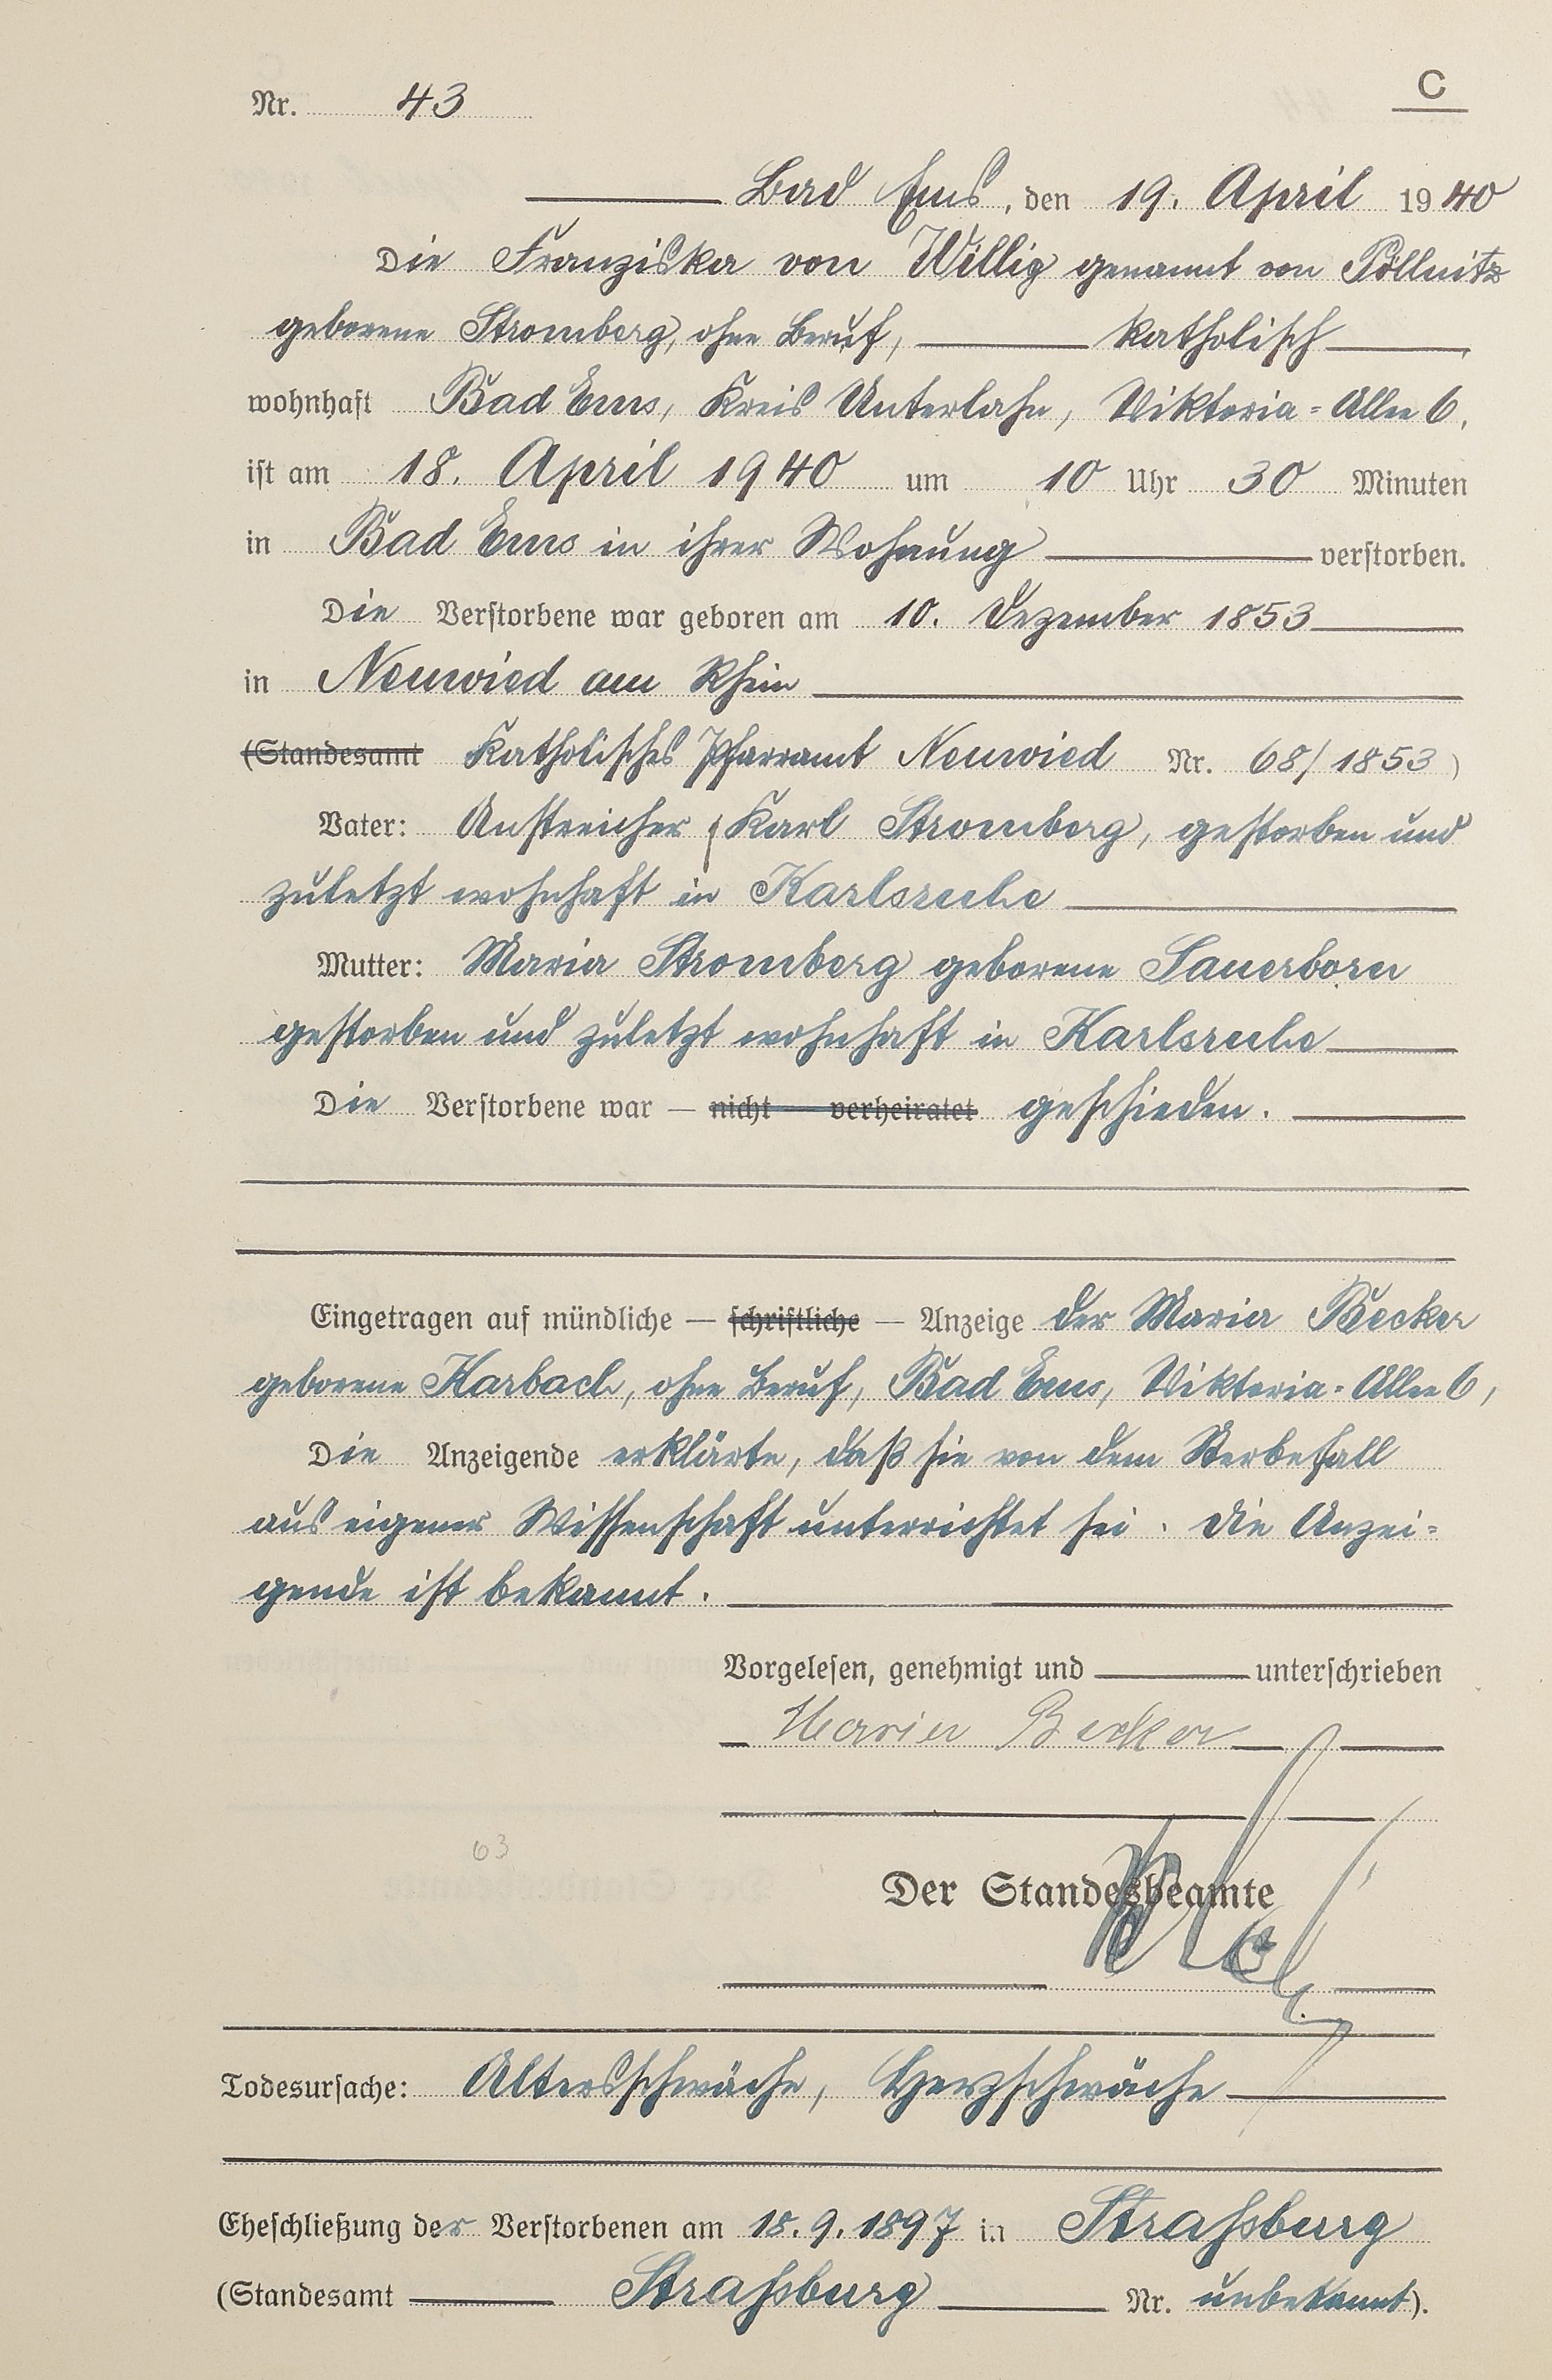 C
Nr. 43
Bad Ems, den 19. April 1940
Die Franziska von Willig genannt von Pöllnitz
geborene Stromberg, ohne Beruf, katholisch
wohnhaft Bad Ems, Kreis Unterlahn, Viktoria-Allee 6,
ist am 18. April 1940 um 10 Uhr 30 Minuten
in Bad Ems in ihrer Wohnung verstorben.
Die Verstorbene war geboren am 10. Dezember 1853
in Neuwied am Rhein
(Standesamt Katholisches Pfarramt Neuwied Nr. 68/1853)
Vater: Anstreicher Karl Stromberg, gestorben und
zuletzt wohnhaft in Karlsruhe
Mutter: Maria Stromberg geborene Sauerborn
gestorben und zuletzt wohnhaft in Karlsruhe
Die Verstorbene war — nicht — verheiratet geschieden.
Eingetragen auf mündliche — schriftliche — Anzeige der Maria Becker
geborene Karbach, ohne Beruf, Bad Ems, Viktoria-Allee 6,
Die Anzeigende erklärte, daß sie von dem Sterbefall
aus eigener Wissenschaft unterrichtet sei. Die Anzei-
gende ist bekannt.
Vorgelesen, genehmigt und unterschrieben
Maria Becker
63
Der Standesbeamte
Todesursache: Altersschwäche, Herzschwäche
Eheschließung der Verstorbenen am 18.9.1897 in Straßburg
(Standesamt Straßburg Nr. unbekannt).